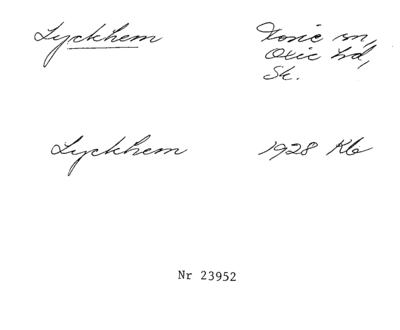 Lyckhem
Fosie sn,
Oxie hd,
Sk.
Lyckhem 1928 Kb
Nr 23952